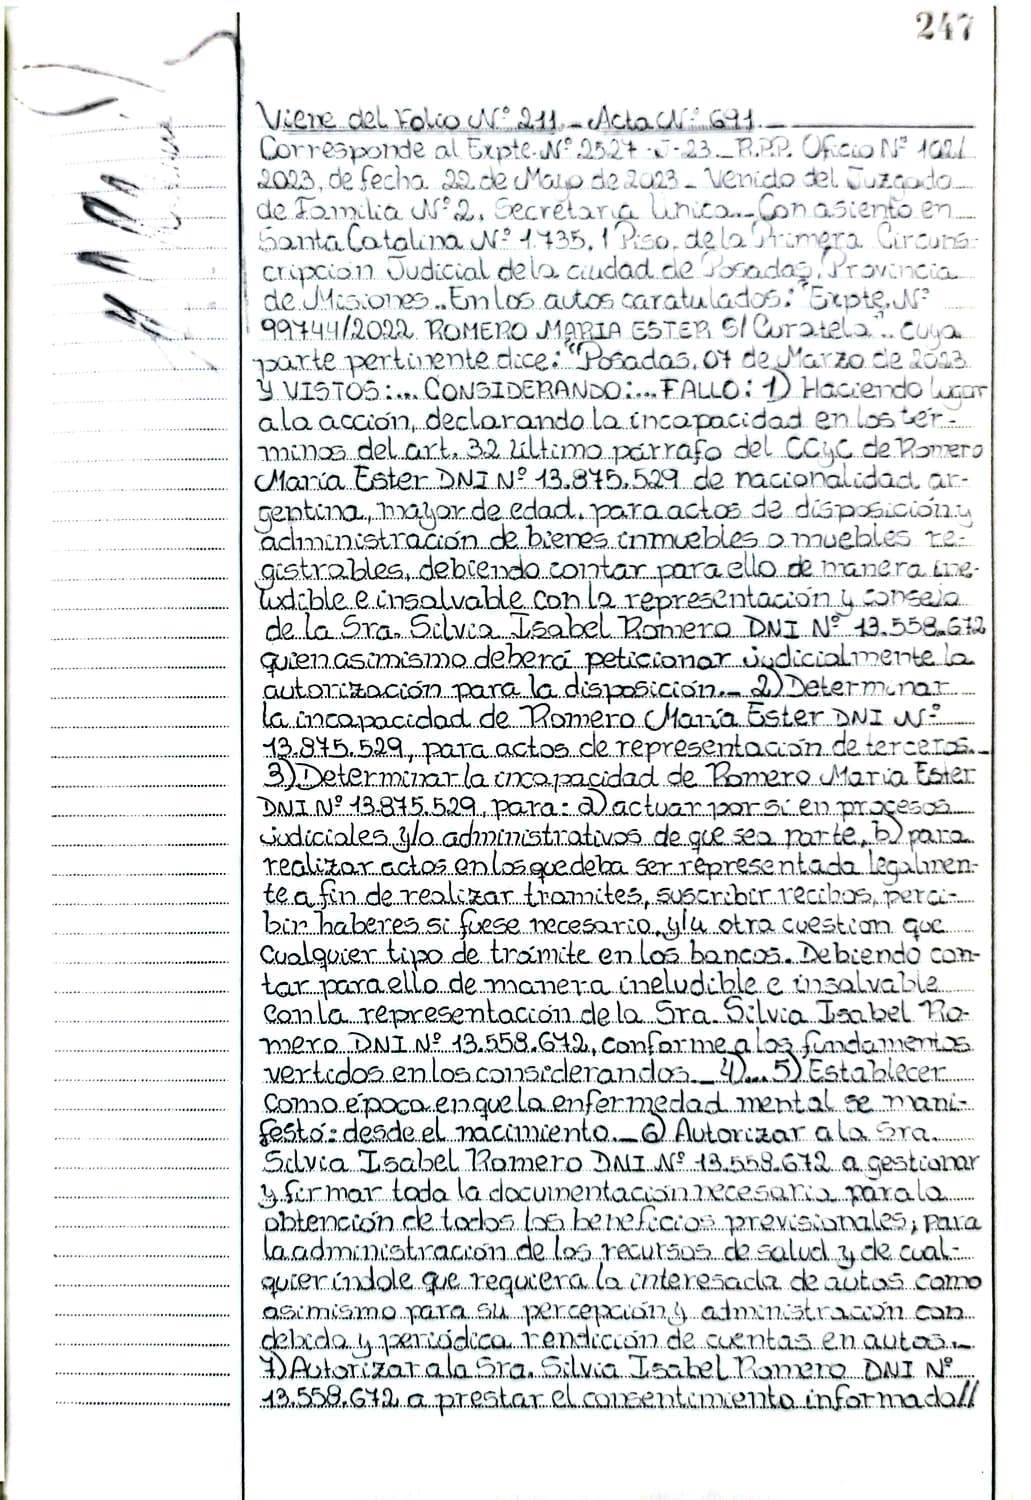 247
Viene del Folio Nº 211.- Acta Nº 691.-
Corresponde al Expte. Nº 2527-J-23.- R.P.P. Oficio Nº 102/
2023, de fecha 22 de Mayo de 2023.- Venido del Juzgado
de Familia Nº 2, Secretaría Unica.- Con asiento en
Santa Catalina Nº 1.735, 1 Piso, de la Primera Circuns-
cripción Judicial de la ciudad de Posadas, Provincia
de Misiones.- En los autos caratulados: "Expte. Nº
99744/2022 ROMERO MARIA ESTER S/ Curatela".- cuya
parte pertinente dice: "Posadas, 07 de Marzo de 2023
Y VISTOS:... CONSIDERANDO:... FALLO: 1) Haciendo lugar
a la acción, declarando la incapacidad en los tér-
minos del art. 32 último párrafo del CCyC de Romero
María Ester DNI Nº 13.875.529 de nacionalidad ar-
gentina, mayor de edad, para actos de disposición y
administración de bienes inmuebles o muebles re-
gistrables, debiendo contar para ello de manera ine-
ludible e insalvable con la representación y consejo
de la Sra. Silvia Isabel Romero DNI Nº 13.558.672
quien asimismo deberá peticionar judicialmente la
autorización para la disposición.- 2) Determinar
la incapacidad de Romero María Ester DNI Nº
13.875.529, para actos de representación de terceros.-
3) Determinar la incapacidad de Romero María Ester
DNI Nº 13.875.529, para: a) actuar por sí en procesos
judiciales y/o administrativos de que sea parte, b) para
realizar actos en los que deba ser representada legalmen-
te a fin de realizar tramites, suscribir recibos, perci-
bir haberes si fuese necesario, y/u otra cuestion que
cualquier tipo de trámite en los bancos. Debiendo con-
tar para ello de manera ineludible e insalvable
con la representación de la Sra. Silvia Isabel Ro-
mero DNI Nº 13.558.672, conforme a los fundamentos
vertidos en los considerandos.- 4)... 5) Establecer
como época en que la enfermedad mental se mani-
festó: desde el nacimiento.- 6) Autorizar a la Sra.
Silvia Isabel Romero DNI Nº 13.558.672 a gestionar
y firmar toda la documentación necesaria para la
obtención de todos los beneficios previsionales; para
la administración de los recursos de salud y de cual-
quier índole que requiera la interesada de autos como
asimismo para su percepción y administración con
debida y periódica rendición de cuentas en autos.-
7) Autorizar a la Sra. Silvia Isabel Romero DNI Nº
13.558.672 a prestar el consentimiento informado//